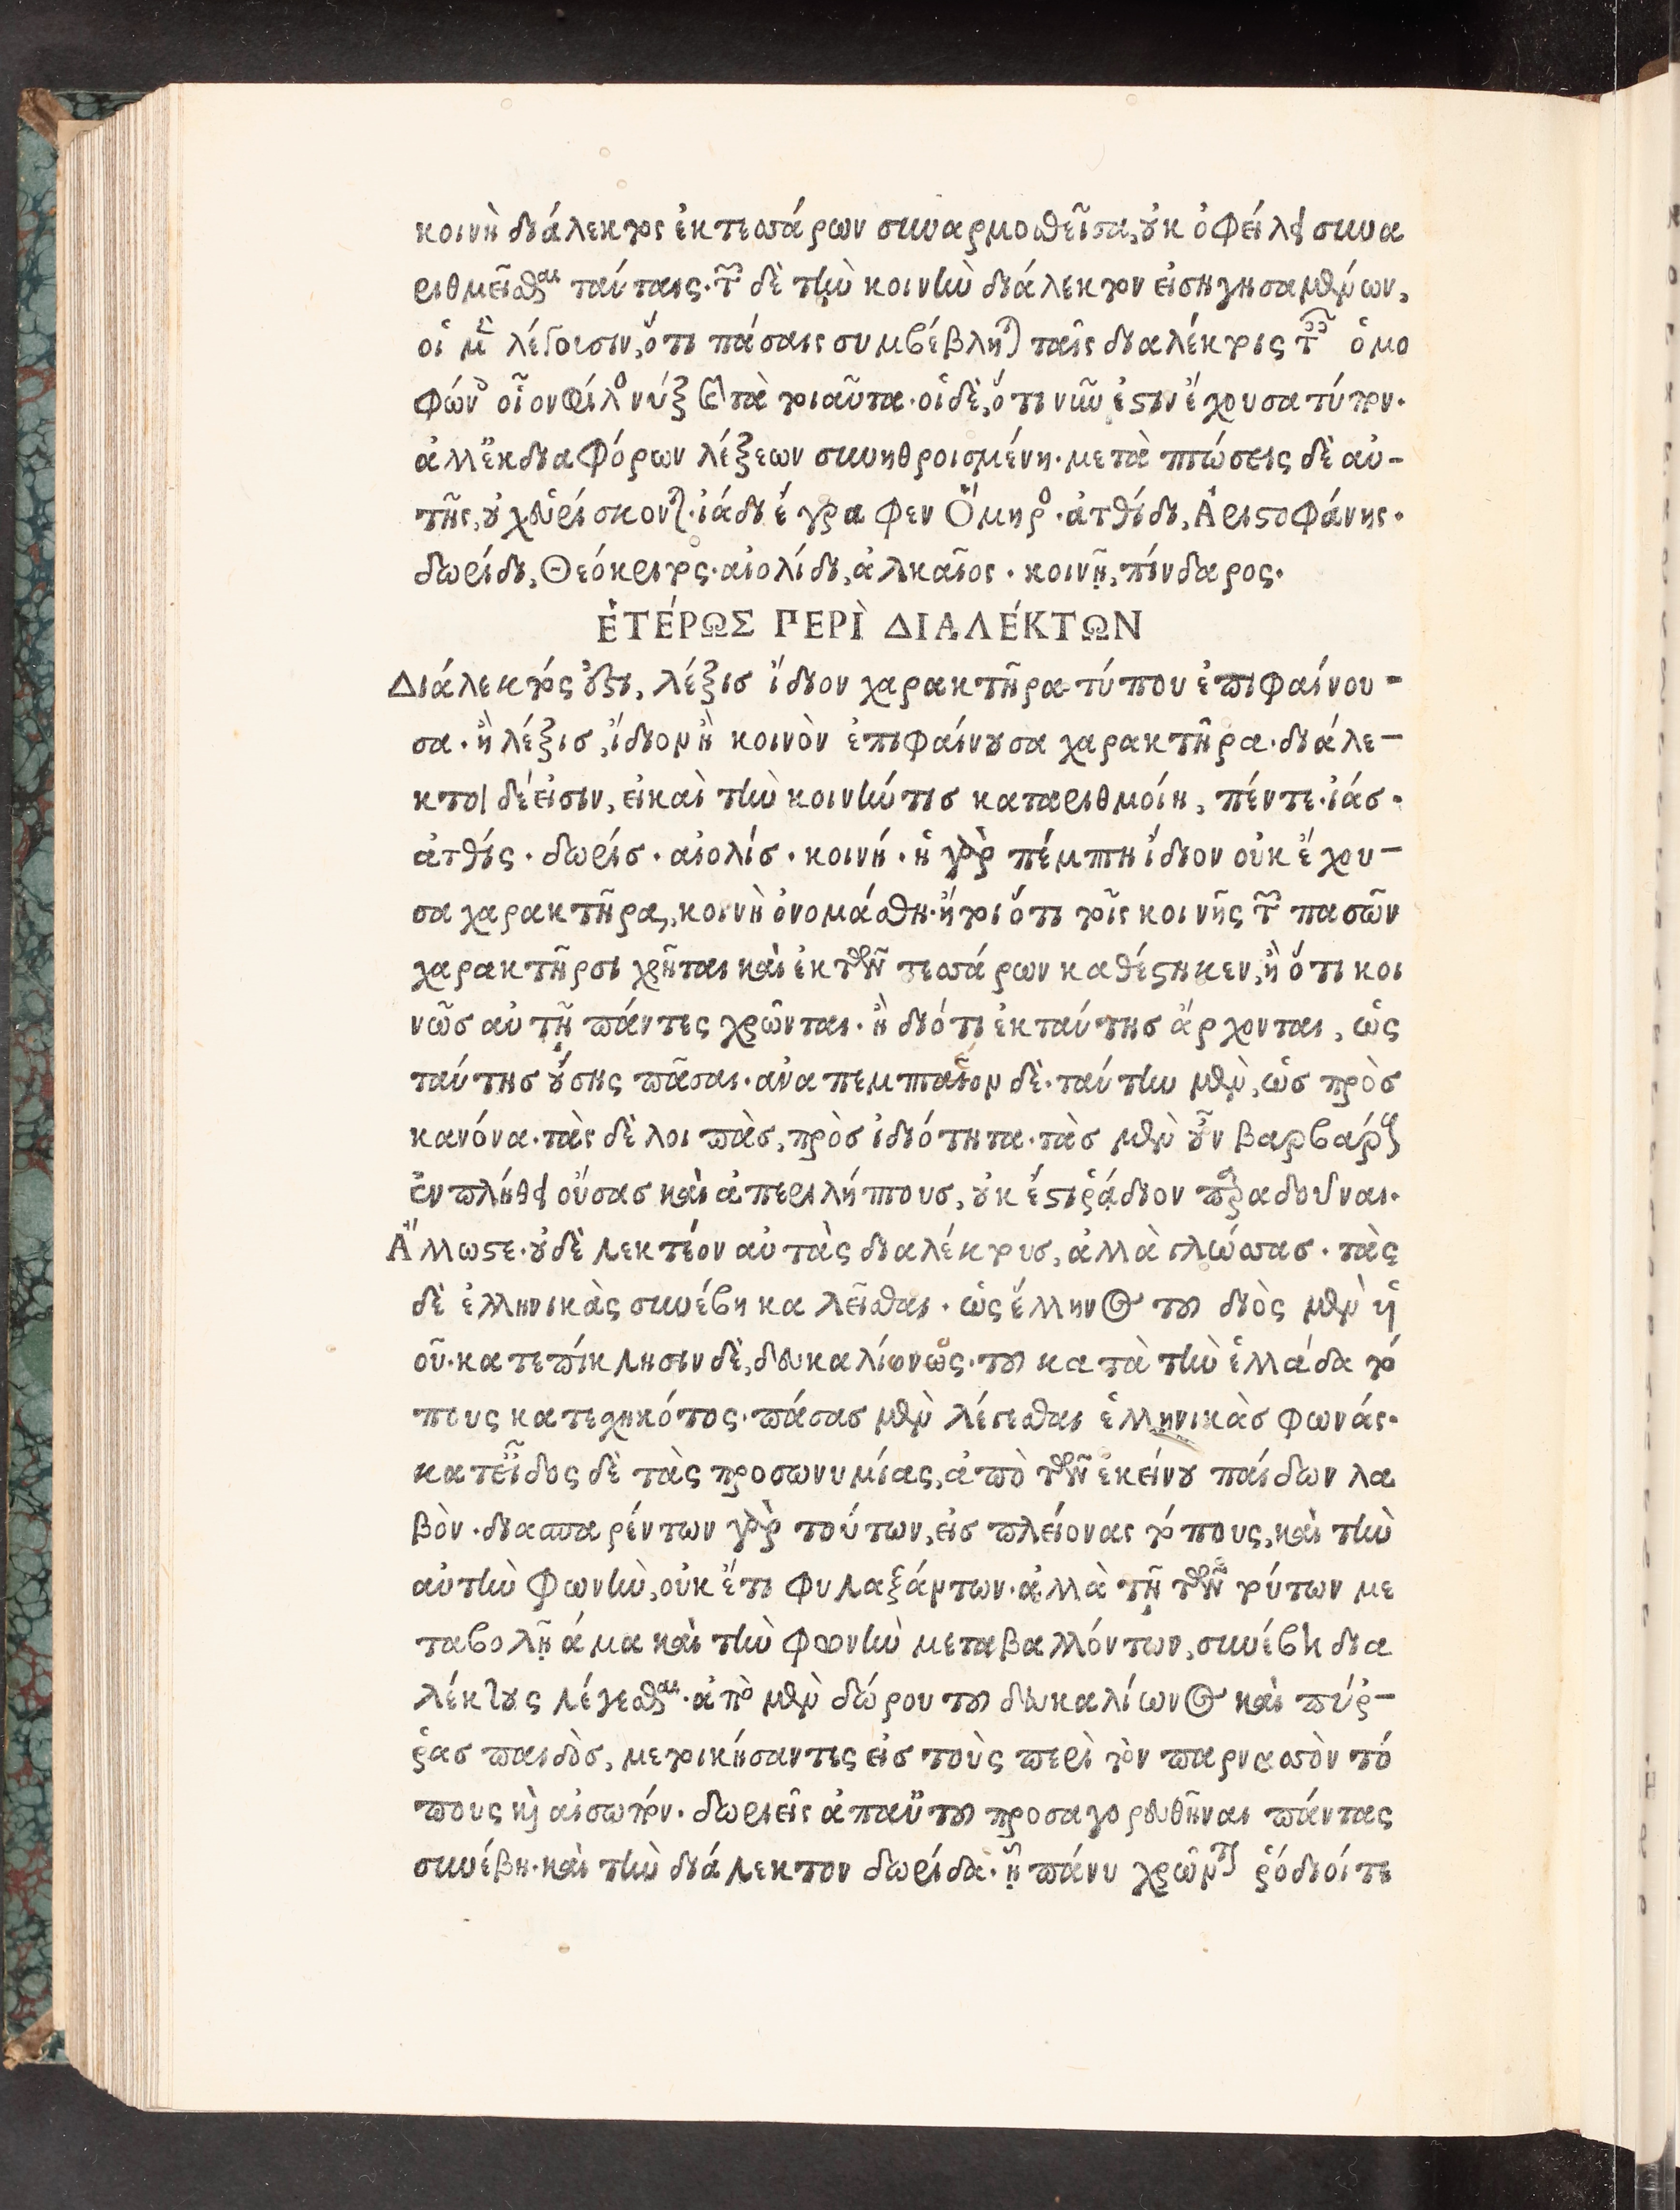 κοινὴ διάλεκτος ἐκ τεσσάρων συναρμοσθεῖσα, οὐκ ὀφείλει συνα
ριθμεῖσθαι ταύταις· τῶν δὲ τὴν κοινὴν διάλεκτον εἰσηγησαμένων,
οἱ μὲν λέγουσιν, ὅτι πάσαις συμβέβληται ταῖς διαλέκτοις τῶν ὁμο
φώνων οἷον φίλος νύξ καὶ τὰ τοιαῦτα· οἱ δὲ, ὅτι νῦν ἐστιν ἔχουσα τύπον·
ἀλλ' ἐκ διαφόρων λέξεων συνηθροισμένη· μεταπτώσεις δὲ αὐ-
τῆς, οὐχ εὑρίσκονται· ἰάδι ἔγραφεν Ὅμηρος· ἀτθίδι, Ἀριστοφάνης·
δωρίδι, Θεόκριτος· αἰολίδι, ἀλκαῖος· κοινῇ, πίνδαρος·
ἙΤΈΡΩΣ ΠΕΡῚ ΔΙΑΛΈΚΤΩΝ
Διάλεκτός ἐστι, λέξις ἴδιον χαρακτῆρα τύπου ἐπιφαίνου-
σα· ἢ λέξις, ἴδιον ἢ κοινὸν ἐπιφαίνουσα χαρακτῆρα· διάλε-
κτοι δέ εἰσιν, εἰ καὶ τὴν κοινήν τις καταριθμοίη, πέντε· ἰάς·
ἀτθίς· δωρίς· αἰολίς· κοινή· ἡ γὰρ πέμπτη ἴδιον οὐκ ἔχου-
σα χαρακτῆρα, κοινὴ ὀνομάσθη· ἤτοι ὅτι τοῖς κοινῆς τῶν πασῶν
χαρακτῆρσι χρῆται καὶ ἐκ τῶν τεσσάρων καθέστηκεν, ἢ ὅτι κοι
νῶς αὐτῇ πάντες χρῶνται· ἢ διότι ἐκ ταύτης ἄρχονται, ὡς
ταύτης οὔσης πᾶσαι· ἀναπεμπταῖον δὲ· ταύτην μὲν, ὡς πρὸς
κανόνα· τὰς δὲ λοιπὰς, πρὸς ἰδιότητα· τὰς μὲν οὖν βαρβάρους
ἐν πλήθει οὔσας καὶ ἀπεριλήπτους, οὐκ ἔστι ῥᾴδιον παραδοῦναι·
Ἄλλωστε· οὐδὲ λεκτέον αὐτὰς διαλέκτους, ἀλλὰ γλώσσας· τὰς
δὲ ἑλληνικὰς συνέβη καλεῖσθαι· ὡς ἕλληνος τοῦ διὸς μὲν ὑϊ
οῦ· κατ' ἐπίκλησιν δὲ, δευκαλίωνος· τοῦ κατὰ τὴν ἑλλάδα τό
πους κατεσχηκότος· πάσας μὲν λέγεσθαι ἑλληνικὰς φωνάς·
κατ' εἶδος δὲ τὰς προσωνυμίας, ἀπὸ τῶν ἐκείνου παίδων λα
βὸν· διασπαρέντων γὰρ τούτων, εἰς πλείονας τόπους, καὶ τὴν
αὐτὴν φωνὴν, οὐκ ἔτι φυλαξάντων· ἀλλὰ τῇ τῶν τούτων με
ταβολῇ ἅμα καὶ τὴν φωνὴν μεταβαλλόντων, συνέβη δια
λέκτους λέγεσθαι· ἀπὸ μὲν δώρου τοῦ δευκαλίωνος καὶ πύῤ-
ῥας παιδὸς, μετοικήσαντες εἰς τοὺς περὶ τὸν παρνασσὸν τό
πους καὶ αἰσωπόν· δωριεῖς ἀπ' αὐτοῦ προσαγορευθῆναι πάντας
συνέβη· καὶ τὴν διάλεκτον δωρίδα· ᾗ πάνυ χρῶνται ῥόδιοί τε